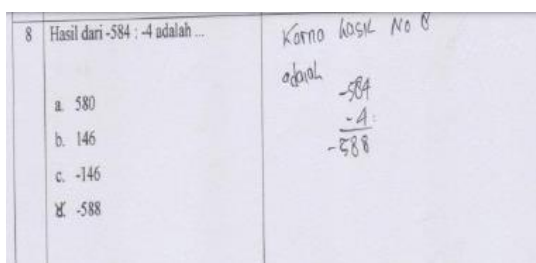 8
Hasil dari -584 : -4 adalah ...
a. 580
b. 146
c. -146
d. -588
Karna hasil No 8
adalah
-584
-4 :
-588